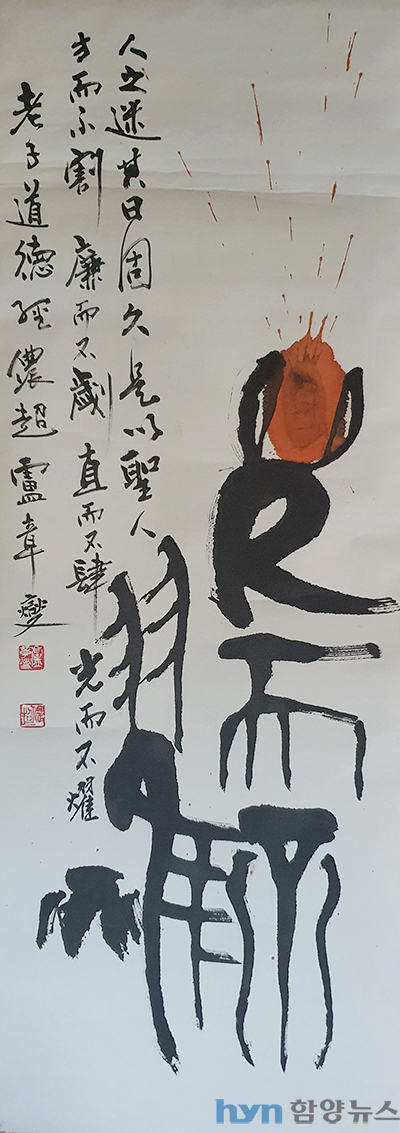 光而不耀
人之迷其日固久是以聖人
方而不割 廉而不劌 直而不肆 光而不耀
老子道德經 儂超 盧章燮
hyn 함양뉴스